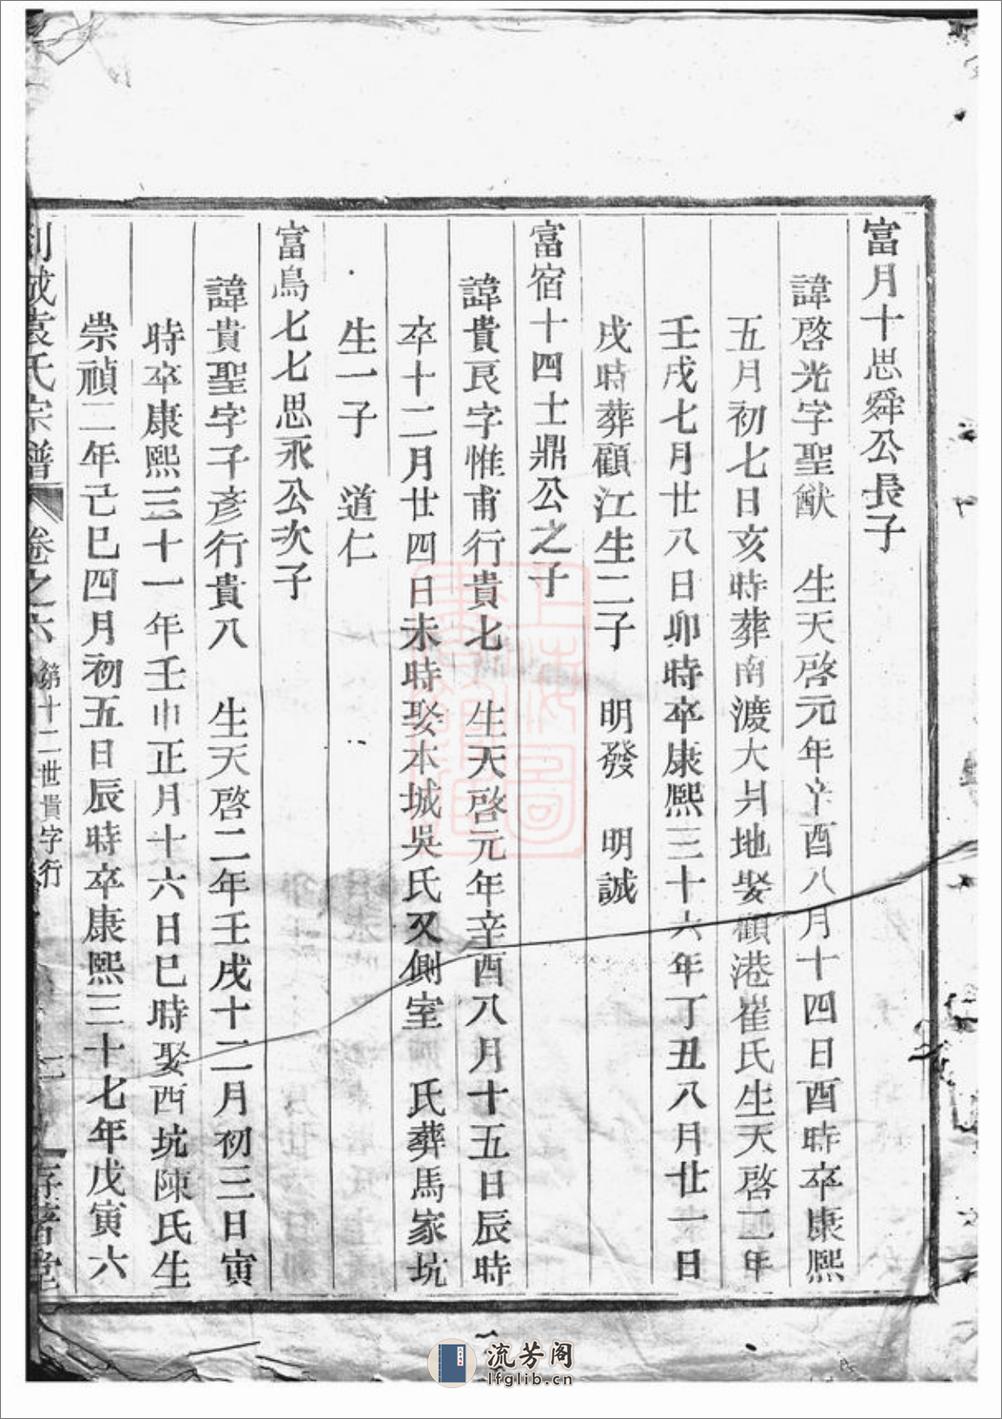 富月十思舜公長子
諱啓光字聖猷　生天啓元年辛酉八月十四日酉時卒康熙
五月初七日亥時葬南渡大爿地娶顧港崔氏生天啓二年
壬戌七月廿八日卯時卒康熙三十六年丁丑八月廿一日
戌時葬顧江生二子　明發　明誠
富宿十四士鼎公之子
諱貴良字惟甫行貴七　生天啓元年辛酉八月十五日辰時
卒十二月廿四日未時娶本城吳氏又側室　氏葬馬家坑
生一子　道仁
富鳥七七思永公次子
諱貴聖字子彥行貴八　生天啓二年壬戌十二月初三日寅
時卒康熙三十一年壬申正月十六日巳時娶西坑陳氏生
崇禎二年己巳四月初五日辰時卒康熙三十七年戊寅六
城袁氏宗譜　卷之六　第十二世貴字行　二　存著堂
上海圖書館藏
流芳阁
lfglib.cn